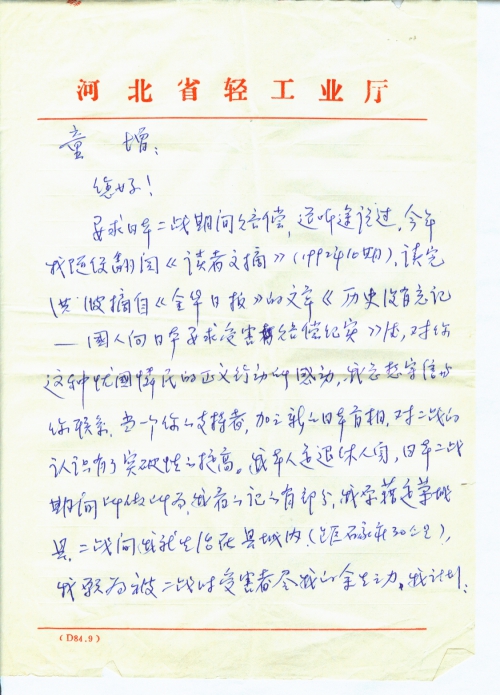 河北省轻工业厅
童增:
您好!
要求日本二战期间赔偿,道听途说过,今年
我随便翻阅《读者文摘》(1992年10期),读完
洪波摘自《金华日报》的文章《历史没有忘记
—国人向日本要求受害赔偿纪实》后,对你
这种忧國憐民的正义行动所感动,我总想写信与
你联系,当一个你的支持者,加之新的日本首相,对二战的
认识有了突破性的提高。我本人是退休人员,日本二战
期间所做所为,我有的记的有部分,我原籍是藁城
县,二战间我就生活在县城内(距石家庄30公里),
我愿为被二战时受害者尽我的余生之力。我计划:
(D84.9)